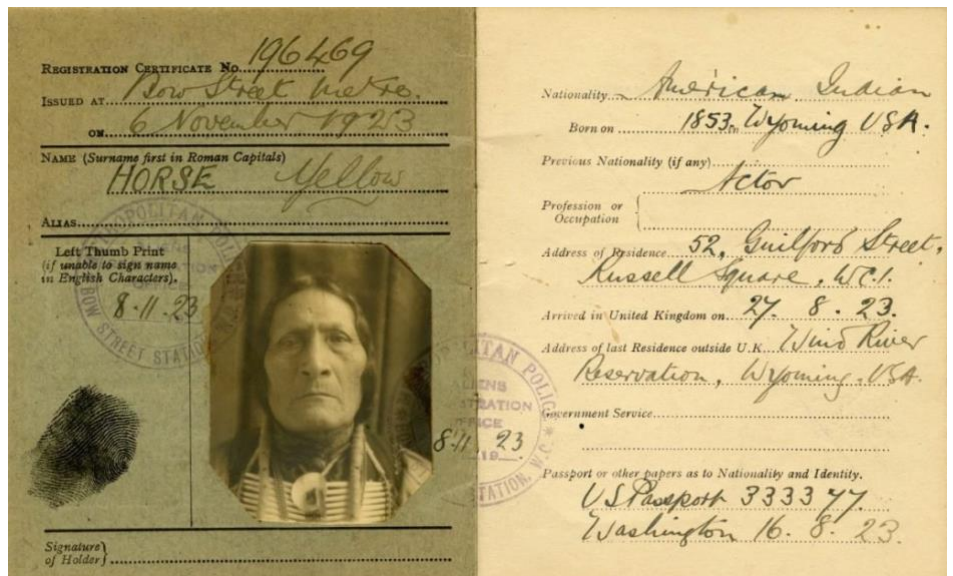 REGISTRATION CERTIFICATE No. 196469
ISSUED AT Bow Street
ON 6 November 1923
NAME (Surname first in Roman Capitals)
HORSE Yellow
ALIAS
Left Thumb Print
(if unable to sign name
in English Characters).
8.11.23
METROPOLITAN POLICE
BOW STREET STATION
Signature
of Holder
Nationality American Indian
Born on 1853 in Wyoming USA.
Previous Nationality (if any)
Actor
Profession or
Occupation
Address of Residence 52, Guilford Street,
Russell Square, W.C.1.
Arrived in United Kingdom on 27. 8. 23.
Address of last Residence outside U.K. Wind River
Reservation, Wyoming. USA.
Government Service
8.11.23
Passport or other papers as to Nationality and Identity.
US Passport 333377.
Washington 16. 8. 23.